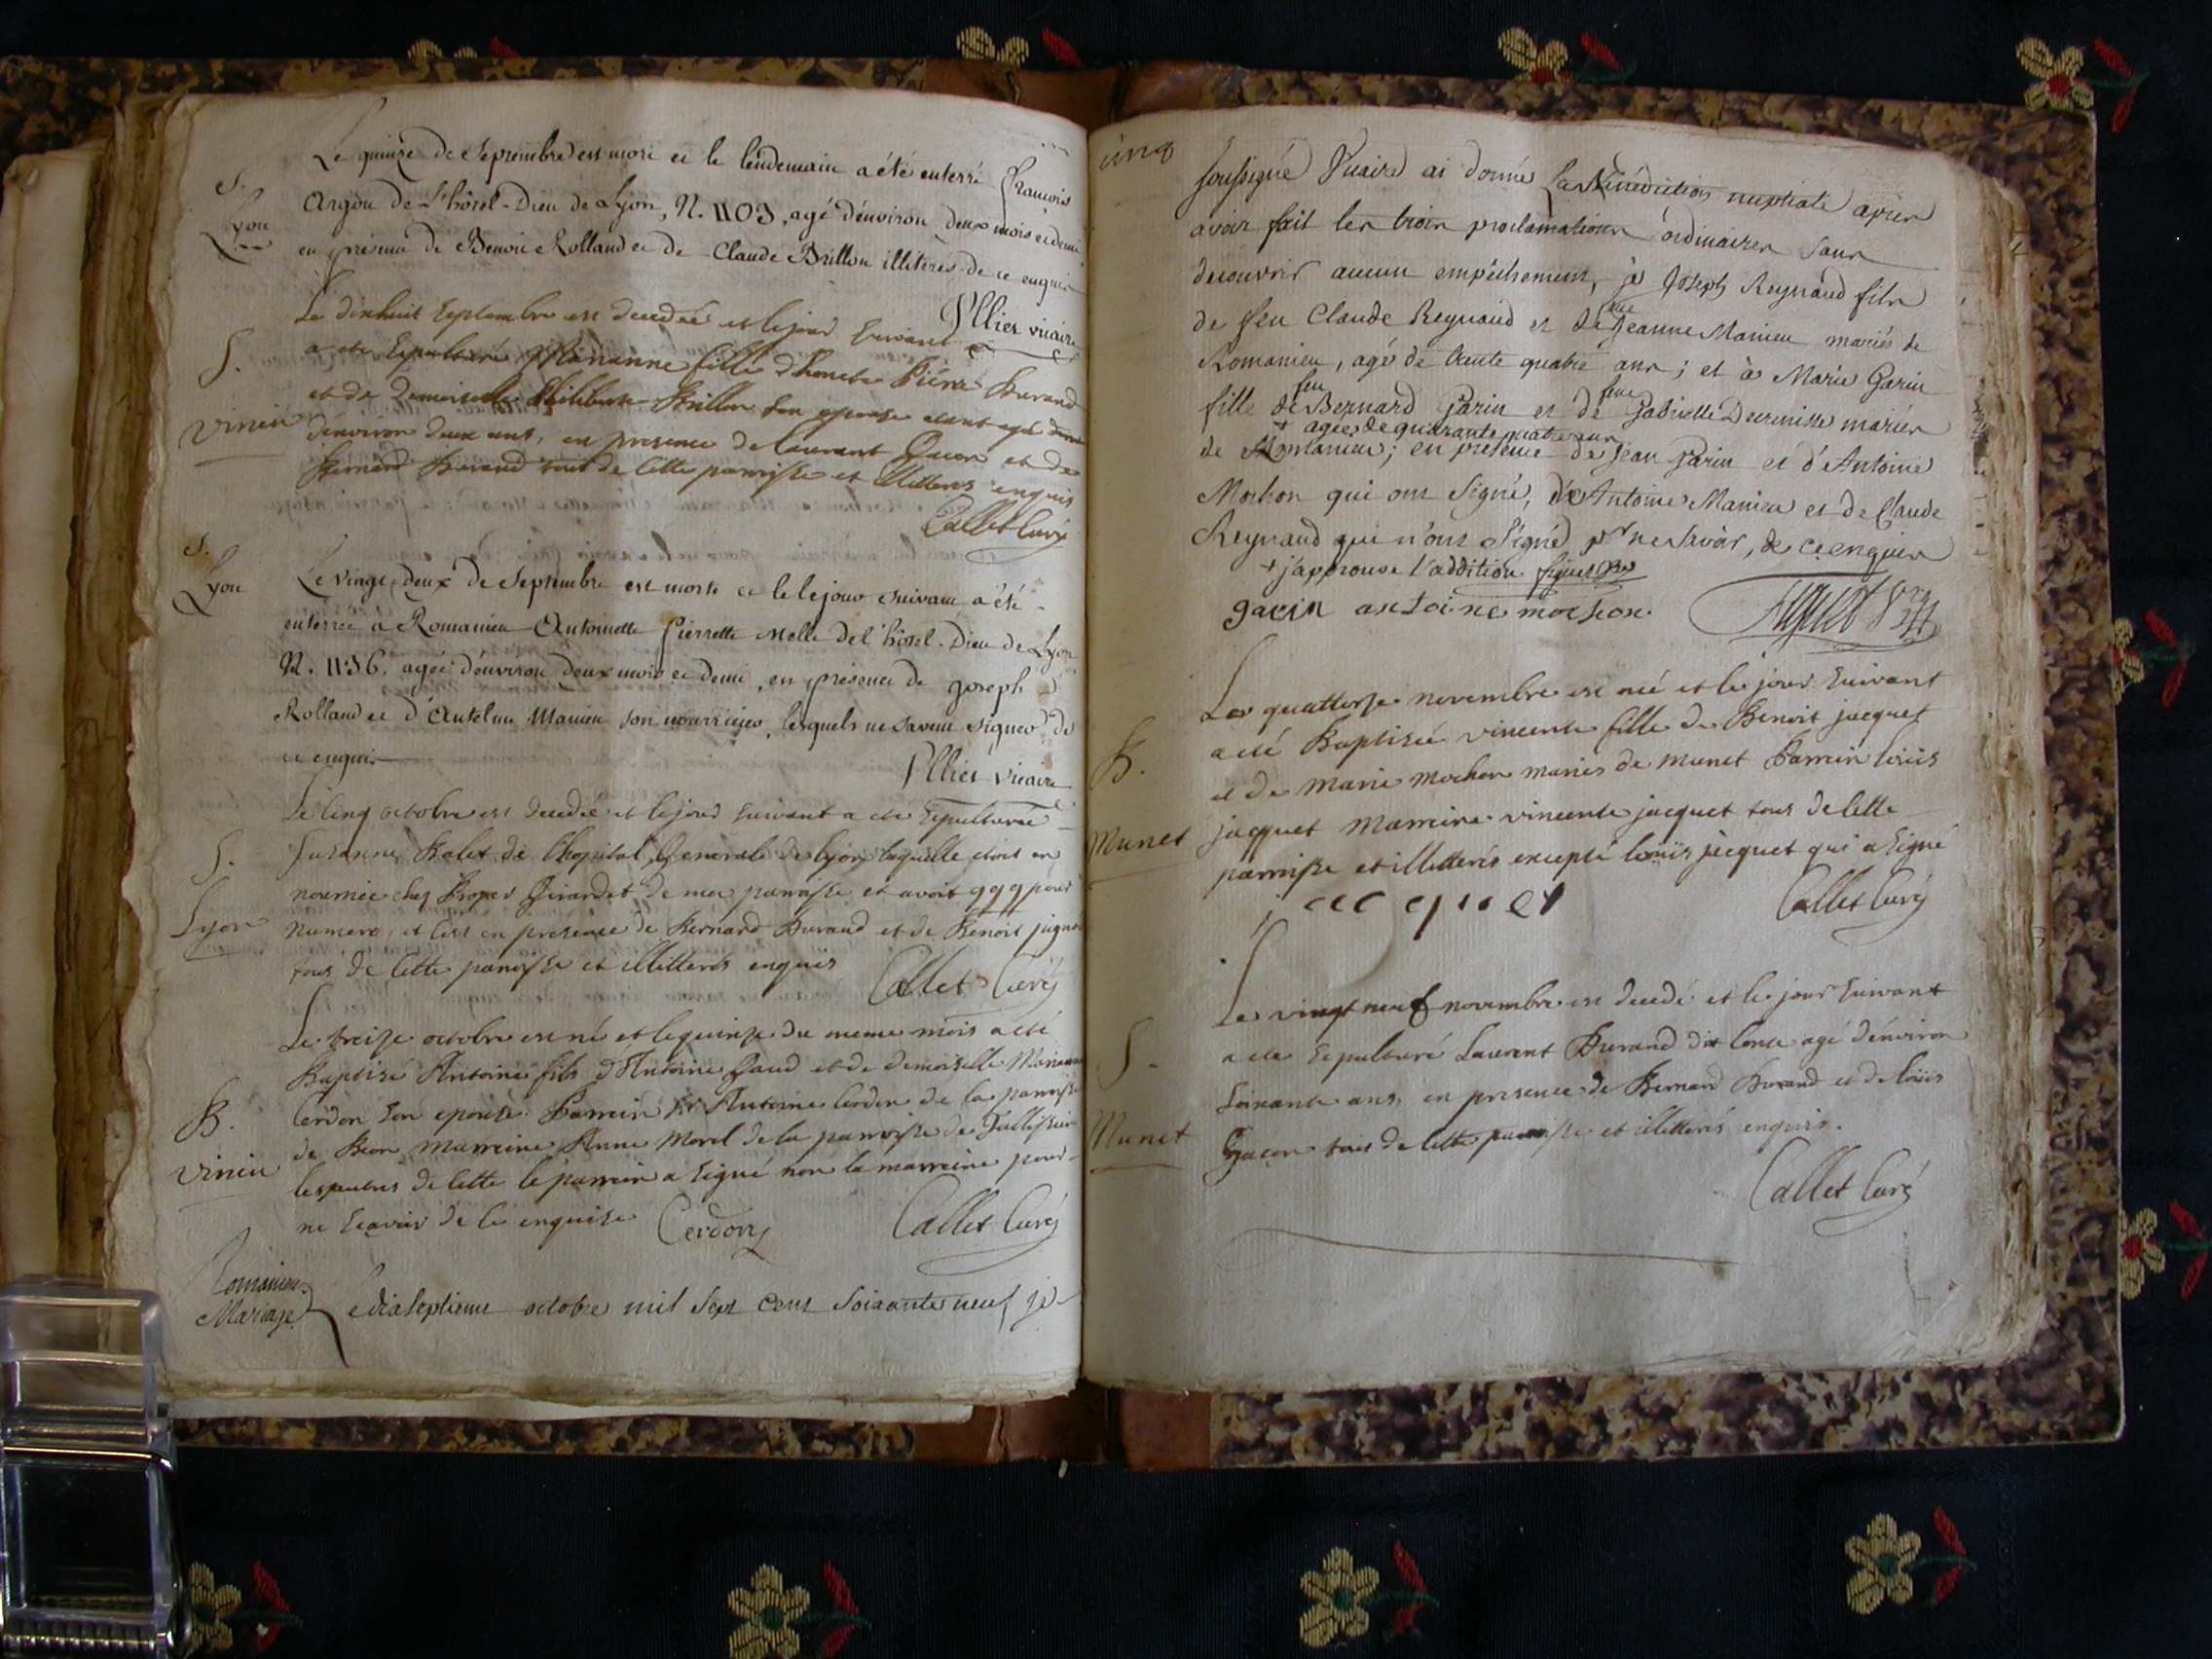 S.
Lyon
Le quinze de Septembre est mort et le lendemain a été enterré françois
Argou de l'hôtel-Dieu de Lyon, N. 1103, agé d'environ deux mois et demi
en présence de Benoit Rolland et de Claude Brillon illiterés de ce enquis
Vllier vicaire
S.
Vinieu
Le dixhuit Septembre est decedée et le jour Suivant
a été Sepulturée Marianne fille d'honete Piérre Durand
et de Demoiselle Philiberte Brillon Son epouse etant agé
d'environ deux ans, en presence de laurant et de
Bernard Durand tous de Cette parroisse et illitterés enquis
Callet Curé
S.
Lyon
Le vingt-deux de Septembre est morte et le lejour suivant a été
enterrée à Romanieu Antoinette pierrette de l'hôtel-Dieu de Lyon
N. 1136. agée d'environ deux mois et demi, en présence de joseph
Rolland et d'Antelme Manieu son nourricier, lesquels ne savent signer de
ce enquis
Vllier vicaire
S.
Lyon
Le Cinq octobre est decedée et lejour suivant a été Sepulturée
Suzanne Balet de l'hopital Generale de lyon laquelle etoit en
nourrice chez Proper Girardet de ma parroisse et avoit 999 pour
numero, et C'est en presence de Bernard Durand et de Benoit
tous de Cette parroisse et illitterés enquis
Callet Curé
B.
Vinieu
Le treize octobre est né et lequinze du meme mois a été
Baptisé Antoine fils d'Antoine Gaud et de demoiselle Marianne
Cerdon Son epouse. Parrein Sr Antoine Cerdon de la parroisse
de Beon Marreine Anne Morel de la parroisse de Tallissieu
les autres de Cette le parrein a signé non la marreine pour
ne Sçavoir de Ce enquise
Cerdon
Callet Curé
Romanieu.
Mariage
Le dixseptieme octobre mil sept cent soixante neuf je
cinq
soussigné Vicaire ai donné La Bénédiction nuptiale après
avoir fait les trois proclamations ordinaires sans
decouvrir aucun empêchement, à Joseph Reynaud fils
de feu Claude Reynaud et de feue Jeanne Manieu mariés de
Romanieu, agé de trente quatre ans; et à Marie Garin
fille de feu Bernard Garin et de feue Gabrielle Decrenisse mariés
+ agée de quarante quatre ans
de Romanieu; en présence de Jean Garin et d'Antoine
Mochon qui ont signé, d'Antoine Manieu et de Claude
Reynaud qui n'ont signé pr ne savoir, de ce enquis
+ j'approuve l'addition.
garin antoine mochon.
B.
Munet
Le quattorze novembre est née et le jour Suivant
a été Baptisée vincente fille de Benoit jacquet
et de marie mochon mariés de munet Parrein loüis
jacquet Marreine vincente jacquet tous de Cette
parroisse et illitterés excepté loüis jacquet qui a signé
jacquet
Callet Curé
S.
Munet
Le vingt neuf novembre est decedé et le jour Suivant
a été Sepulturé Laurent Durand dit agé d'environ
Soixante ans, en presence de Bernard Durand et de loüis
tous de Cette parroisse et illitterés enquis.
Callet Curé